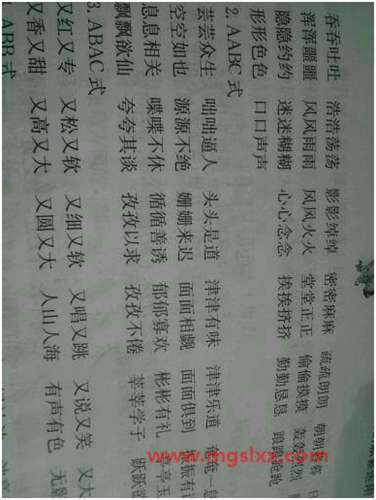 吞吞吐吐 浩浩荡荡 影影绰绰 密密麻麻 疏疏朗朗 朝朝
浑浑噩噩 风风雨雨 风风火火 堂堂正正 偷偷摸摸 轰轰烈烈
隐隐约约 迷迷糊糊 心心念念 挨挨挤挤 勤勤恳恳 踉踉跄跄
形形色色 口口声声
2. AABC 式
芸芸众生 咄咄逼人 头头是道 津津有味 津津乐道
空空如也 源源不绝 姗姗来迟 面面相觑 面面俱到 振有
息息相关 喋喋不休 循循善诱 郁郁寡欢 彬彬有礼
飘飘欲仙 夸夸其谈 孜孜以求 孜孜不倦 莘莘学子 跃跃
3. ABAC 式
又红又专 又松又软 又细又软 又唱又跳 又说又笑 又大
又香又甜 又高又大 又圆又大 人山人海 有声有色 无
ABB 式
www.mgslxx.com